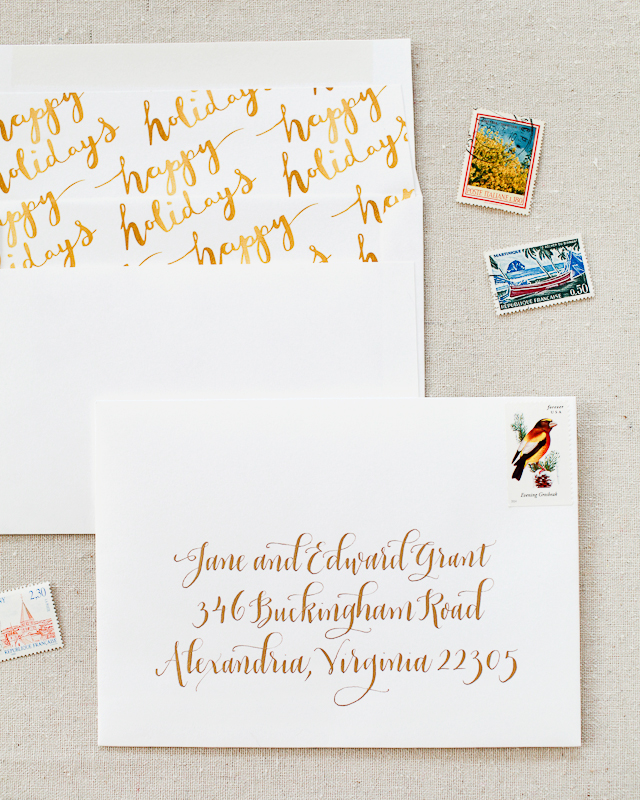 happy
holidays
happy
holidays
happy
holidays
happy
holidays
happy
holidays
happy
POSTE ITALIANE
MARTINIQUE
RÉPUBLIQUE FRANÇAISE
0,50
forever
USA
Evening Grosbeak
Jane and Edward Grant
346 Buckingham Road
Alexandria, Virginia 22305
2,30
REPUBLIQUE FRANÇAISE